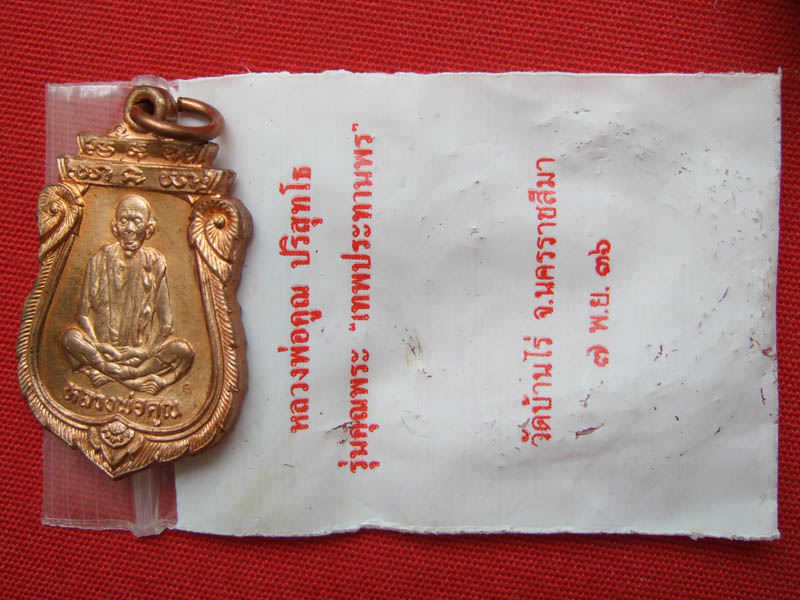 หลวงพ่อคูณ ปริสุทโธ
รุ่นคุณพระ "เทพประทานพร"
วัดบ้านไร่ จ.นครราชสีมา
๗ พ.ย. ๓๖
หลวงพ่อคูณ